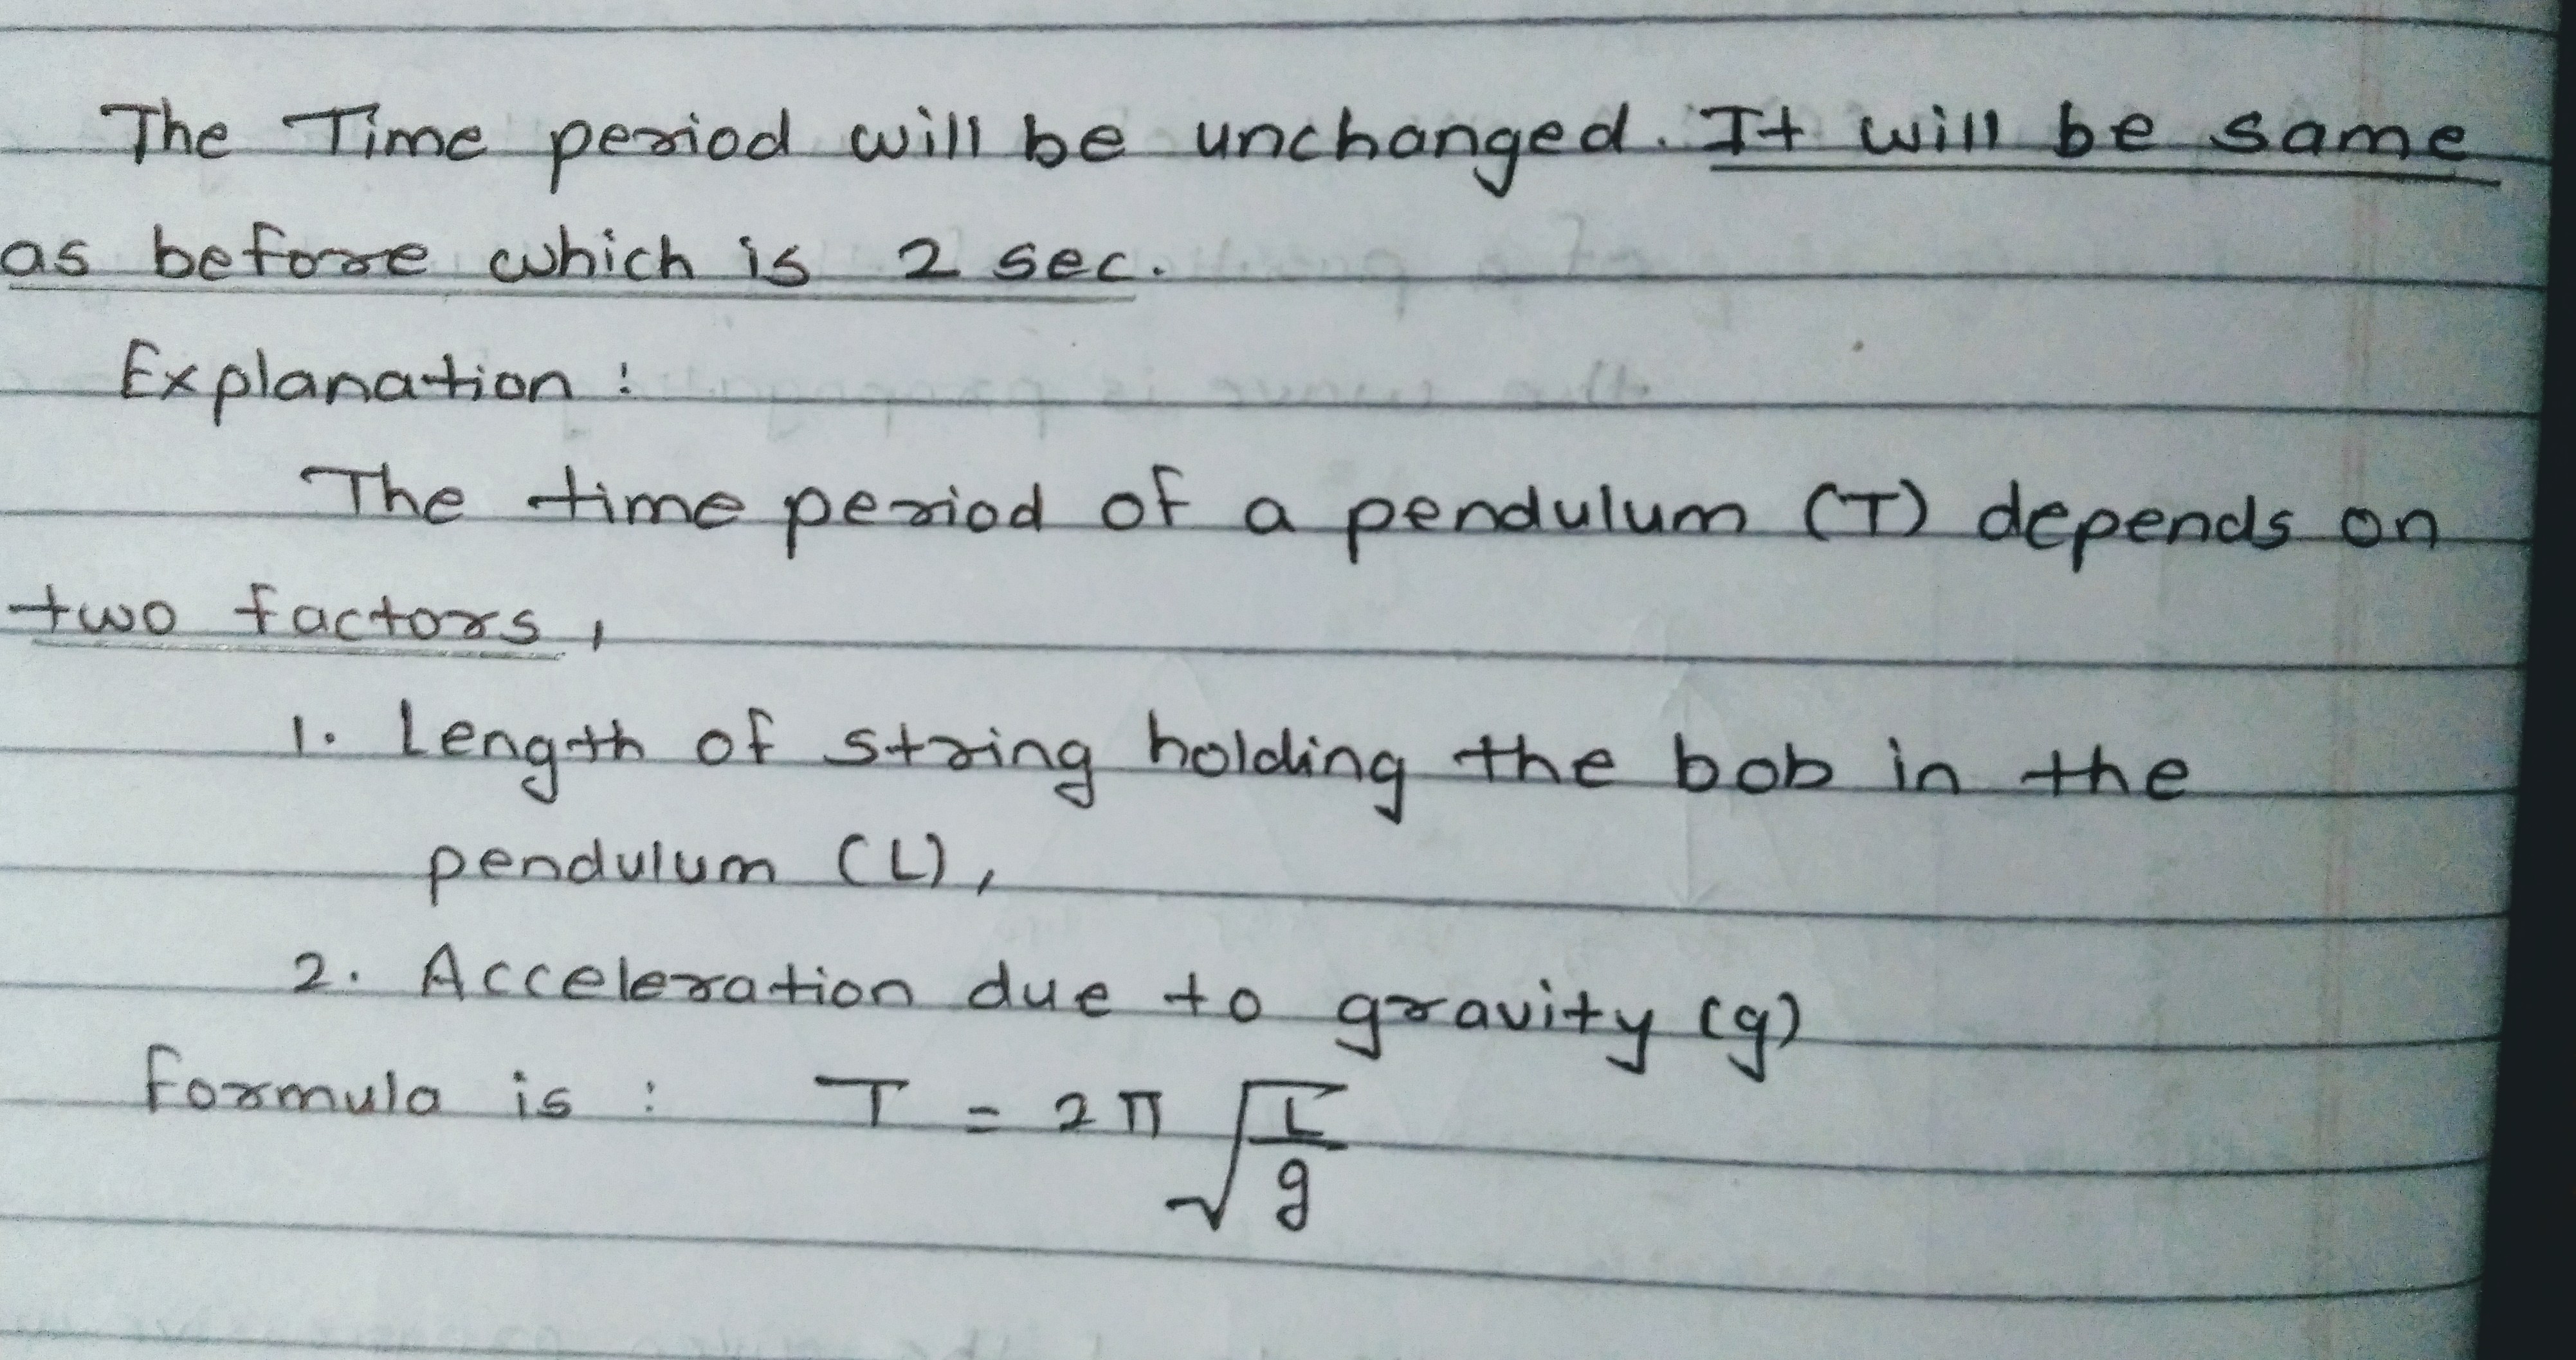 The Time period will be unchanged. It will be same
as before which is 2 sec.
Explanation :
The time period of a pendulum (T) depends on
two factors,
1. Length of string holding the bob in the
pendulum (L),
2. Acceleration due to gravity (g)
Formula is : T = 2π √(L/g)